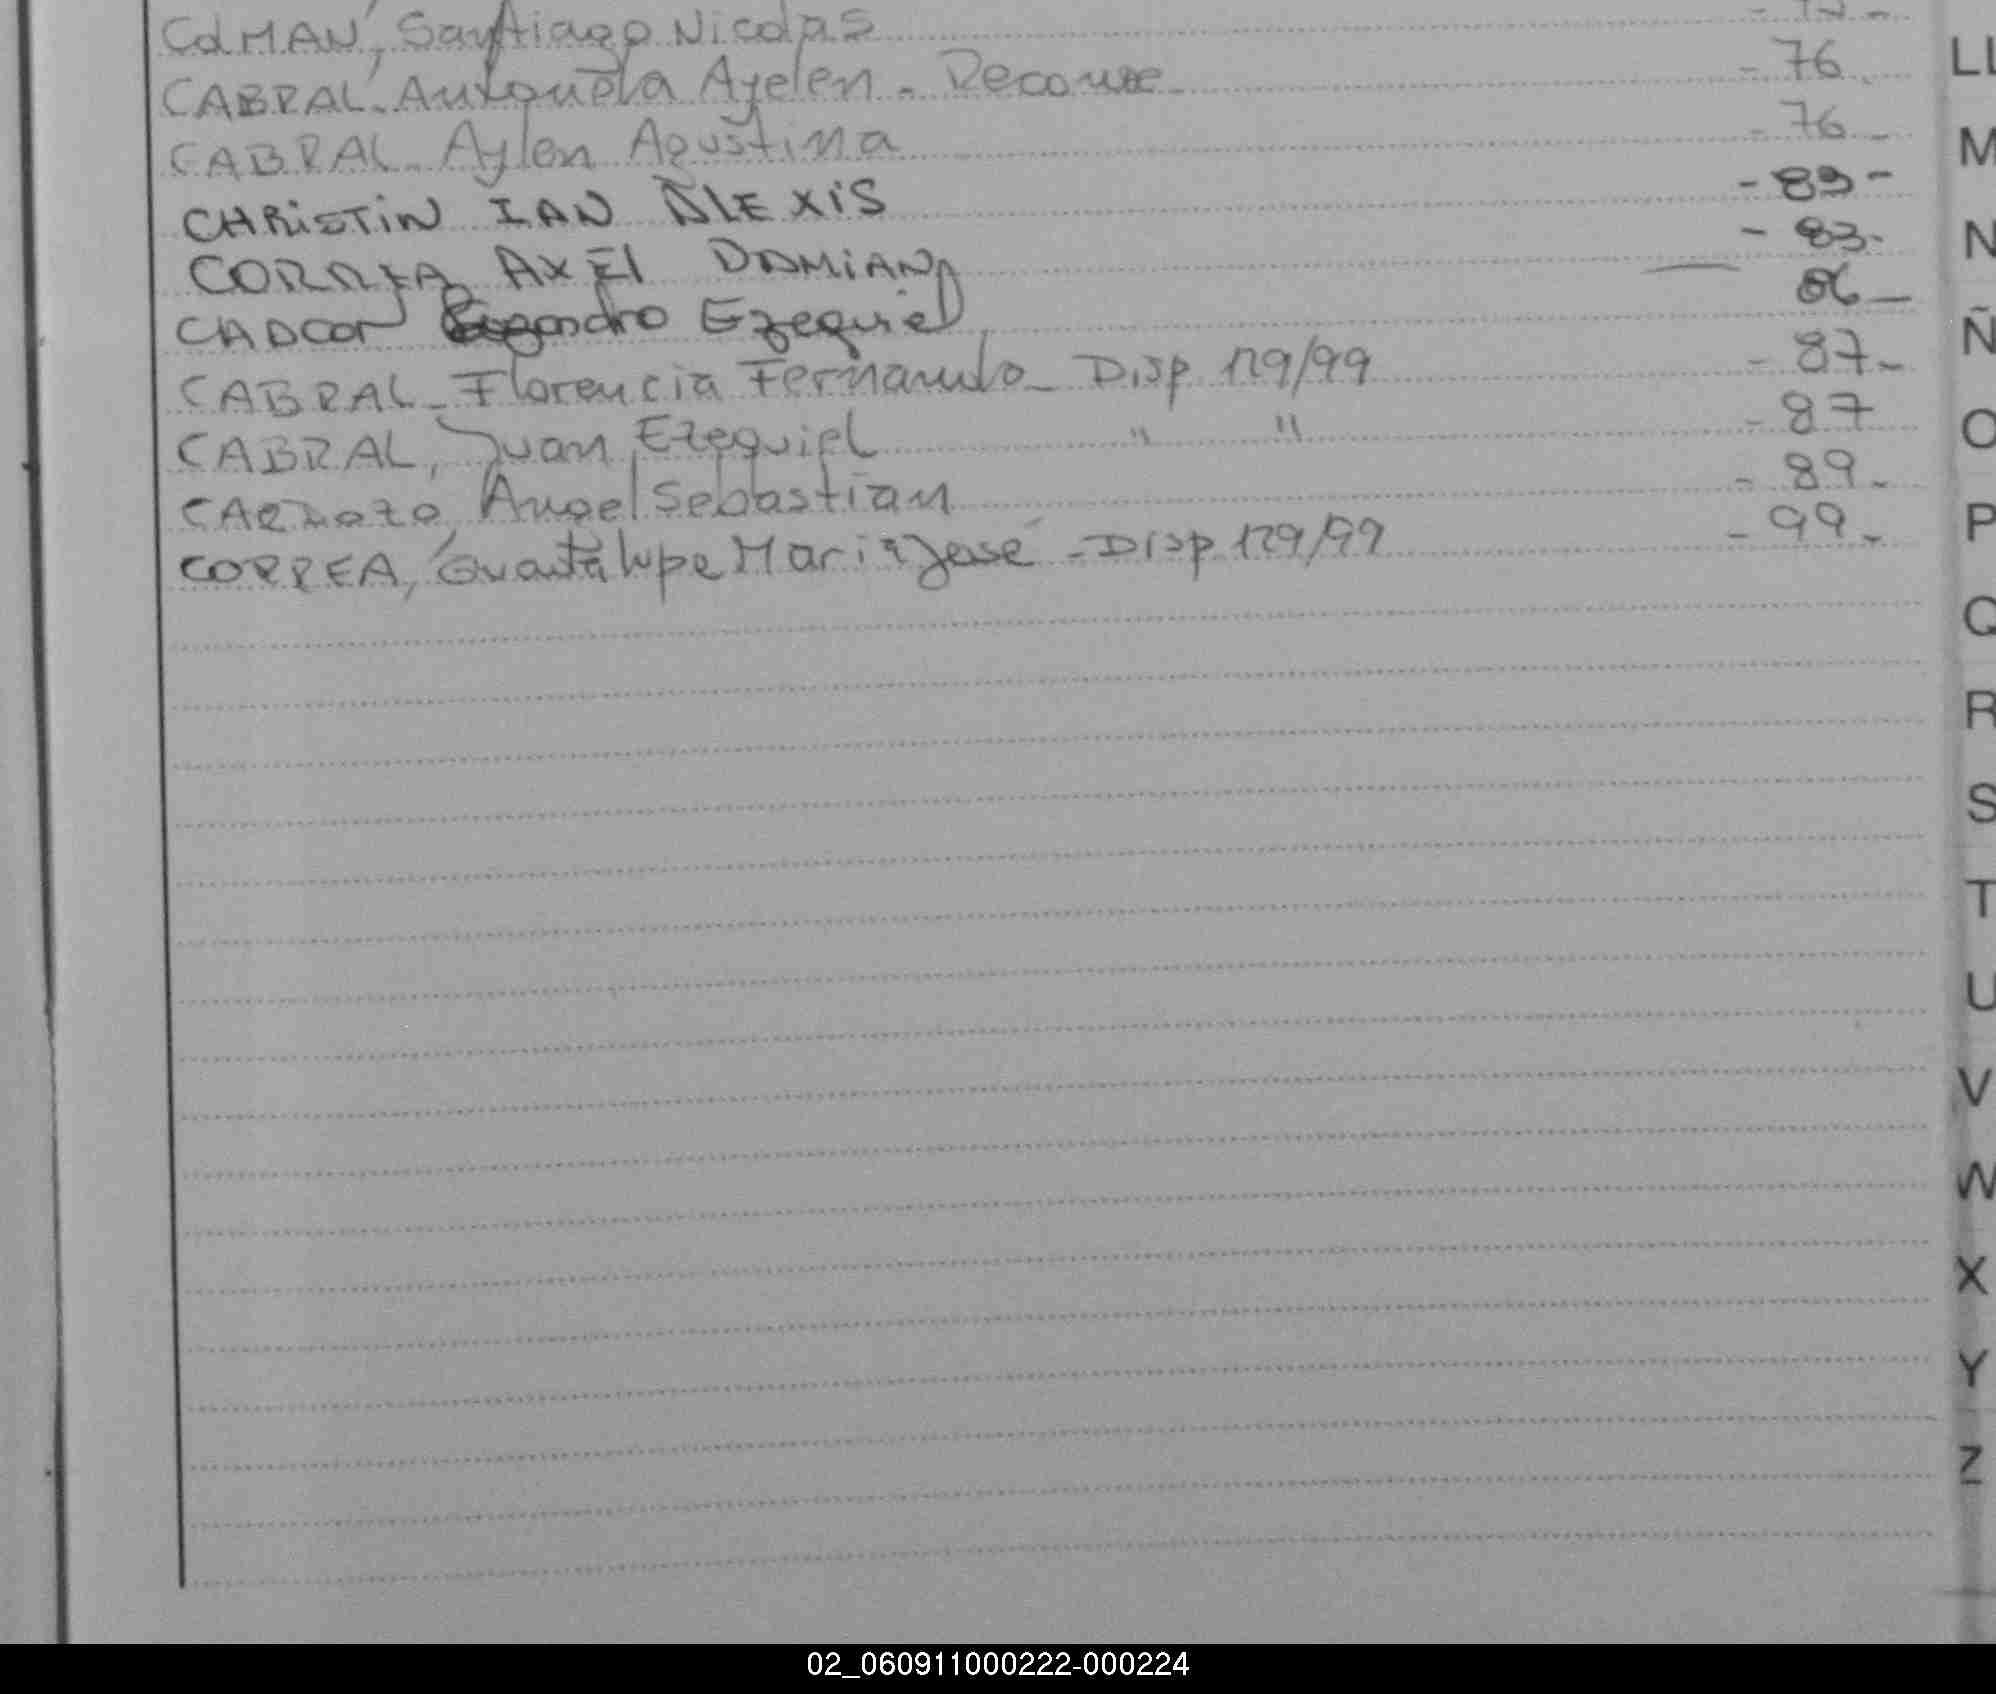 COLMAN, Santiago Nicolas
CABRAL, Antonela Ayelen - Reconoce - 76
CABRAL - Aylen Agustina - 76 -
CHRISTIN IAN ALEXIS - 83 -
CORREA AXEl DAMIAN - 83 -
Ezequiel 86 -
CABRAL - Florencia Fernanda - Disp 129/99 - 87 -
CABRAL, Juan Ezequiel " " - 87
CARDOZO, Angel Sebastian - 89 -
CORREA, Guadalupe Maria José - Disp 129/99 - 99 -
LL
M
N
Ñ
O
P
Q
R
S
T
U
V
W
X
Y
Z
02_060911000222-000224